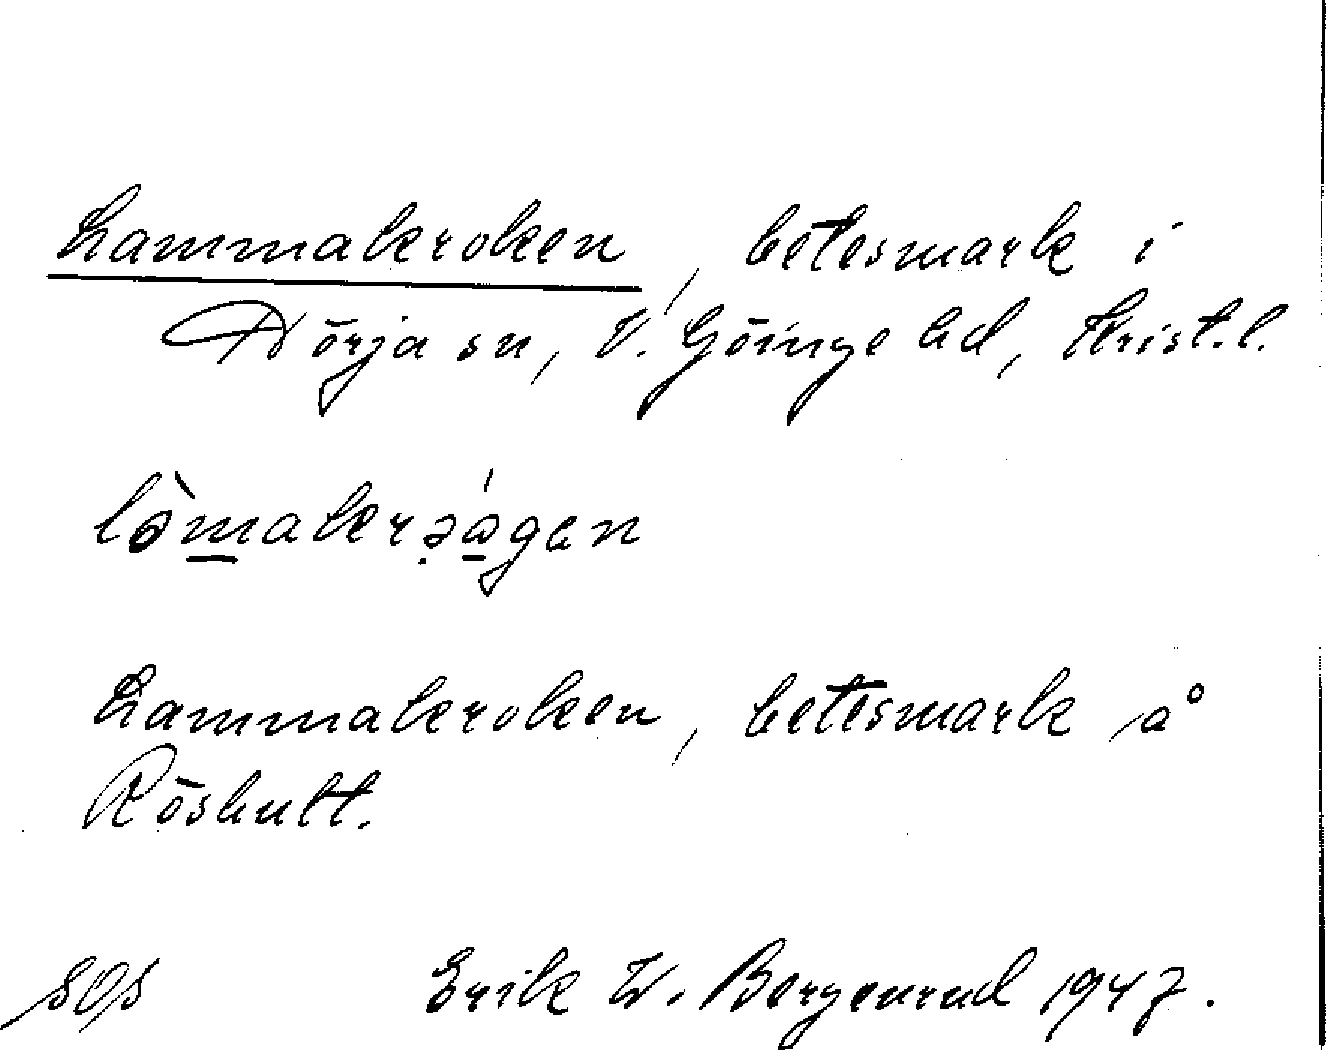 Lammakroken, betesmark i
Nörja sn, V. Göinge hd, Krist.l.
Lammakroken, betesmark å
Röshult.
SOS Erik W. Bergenrud 1947.